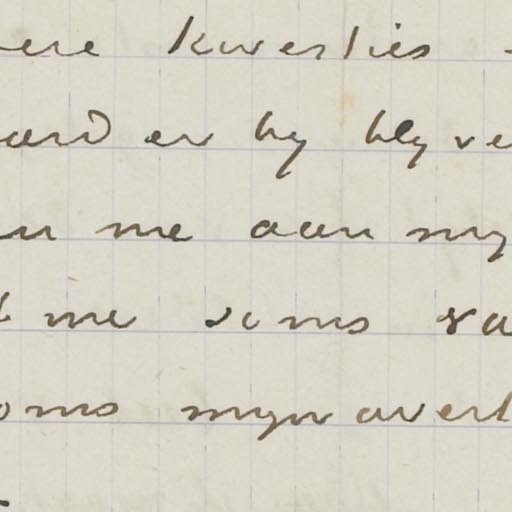 ere kwesties
aard en hy blyve
me aan my
me soms ra
oms myn overt